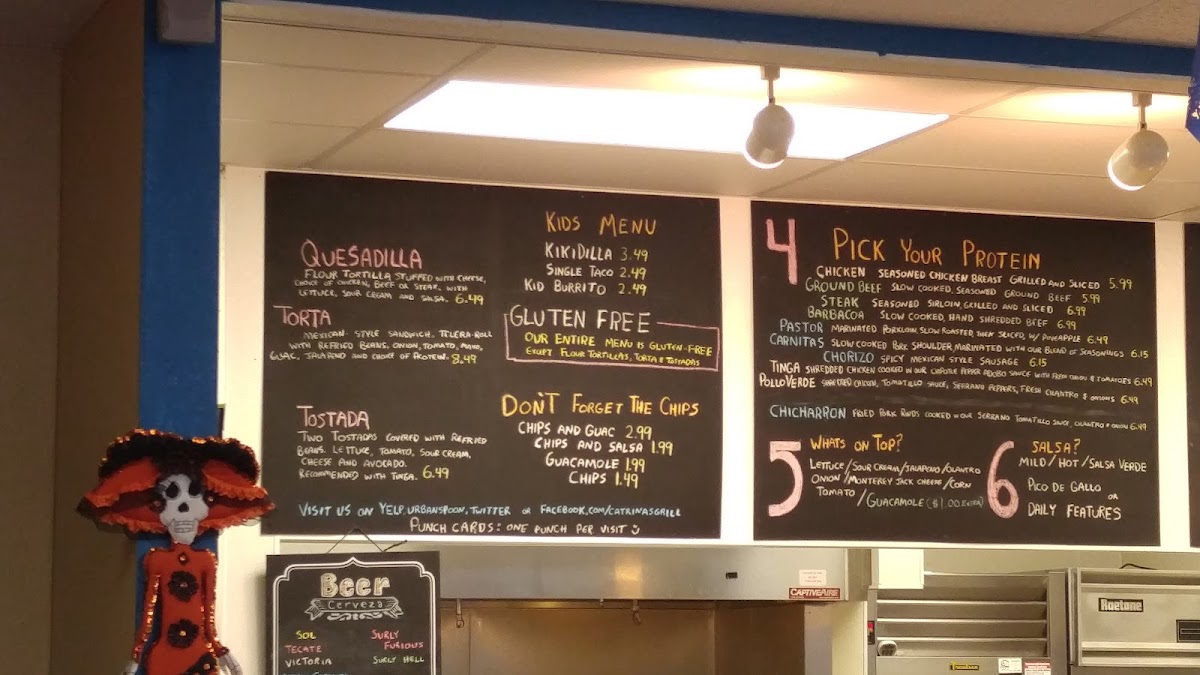 QUESADILLA
FLOUR TORTILLA STUFFED WITH CHEESE,
CHOICE OF CHICKEN, BEEF OR STEAK. WITH
LETTUCE, SOUR CREAM AND SALSA. 6.49
TORTA
MEXICAN STYLE SANDWICH. TELERA-ROLL
WITH REFRIED BEANS, ONION, TOMATO, MAYO,
GUAC, JALAPENO AND CHOICE OF PROTEIN. 8.49
TOSTADA
TWO TOSTADAS COVERED WITH REFRIED
BEANS. LETTUCE, TOMATO, SOUR CREAM,
CHEESE AND AVOCADO.
RECOMMENDED WITH TINGA. 6.49
KIDS MENU
KIKIDILLA 3.49
SINGLE TACO 2.49
KID BURRITO 2.49
GLUTEN FREE
OUR ENTIRE MENU IS GLUTEN-FREE
EXCEPT FLOUR TORTILLAS, TORTA & TOSTADAS
DON'T FORGET THE CHIPS
CHIPS AND GUAC 2.99
CHIPS AND SALSA 1.99
GUACAMOLE 1.99
CHIPS 1.49
VISIT US ON YELP, URBANSPOON, TWITTER OR FACEBOOK.COM/CATRINASGRILL
PUNCH CARDS: ONE PUNCH PER VISIT
4 PICK YOUR PROTEIN
CHICKEN SEASONED CHICKEN BREAST GRILLED AND SLICED 5.99
GROUND BEEF SLOW COOKED, SEASONED GROUND BEEF 5.99
STEAK SEASONED SIRLOIN, GRILLED AND SLICED 6.99
BARBACOA SLOW COOKED, HAND SHREDDED BEEF 6.99
PASTOR MARINATED PORKLOIN, SLOW ROASTED, THEN SLICED, W/ PINEAPPLE 6.49
CARNITAS SLOW COOKED PORK SHOULDER, MARINATED WITH OUR BLEND OF SEASONINGS 6.15
CHORIZO SPICY MEXICAN STYLE SAUSAGE 6.15
TINGA SHREDDED CHICKEN COOKED IN OUR CHIPOTLE PEPPER ADOBO SAUCE WITH FRESH ONION & TOMATOES 6.49
POLLO VERDE SHREDDED CHICKEN, TOMATILLO SAUCE, SERRANO PEPPERS, FRESH CILANTRO & ONIONS 6.49
CHICHARRON FRIED PORK RINDS COOKED IN OUR SERRANO TOMATILLO SAUCE, CILANTRO & ONION 6.49
5 WHATS ON TOP?
LETTUCE/SOUR CREAM/JALAPENO/CILANTRO
ONION/MONTEREY JACK CHEESE/CORN
TOMATO/GUACAMOLE ($1.00 EXTRA)
6 SALSA?
MILD/HOT/SALSA VERDE
PICO DE GALLO
OR
DAILY FEATURES
Beer
Cerveza
SOL
TECATE
VICTORIA
SURLY
FURIOUS
SURLY HELL
CAPTIVEAIRE
Raetone